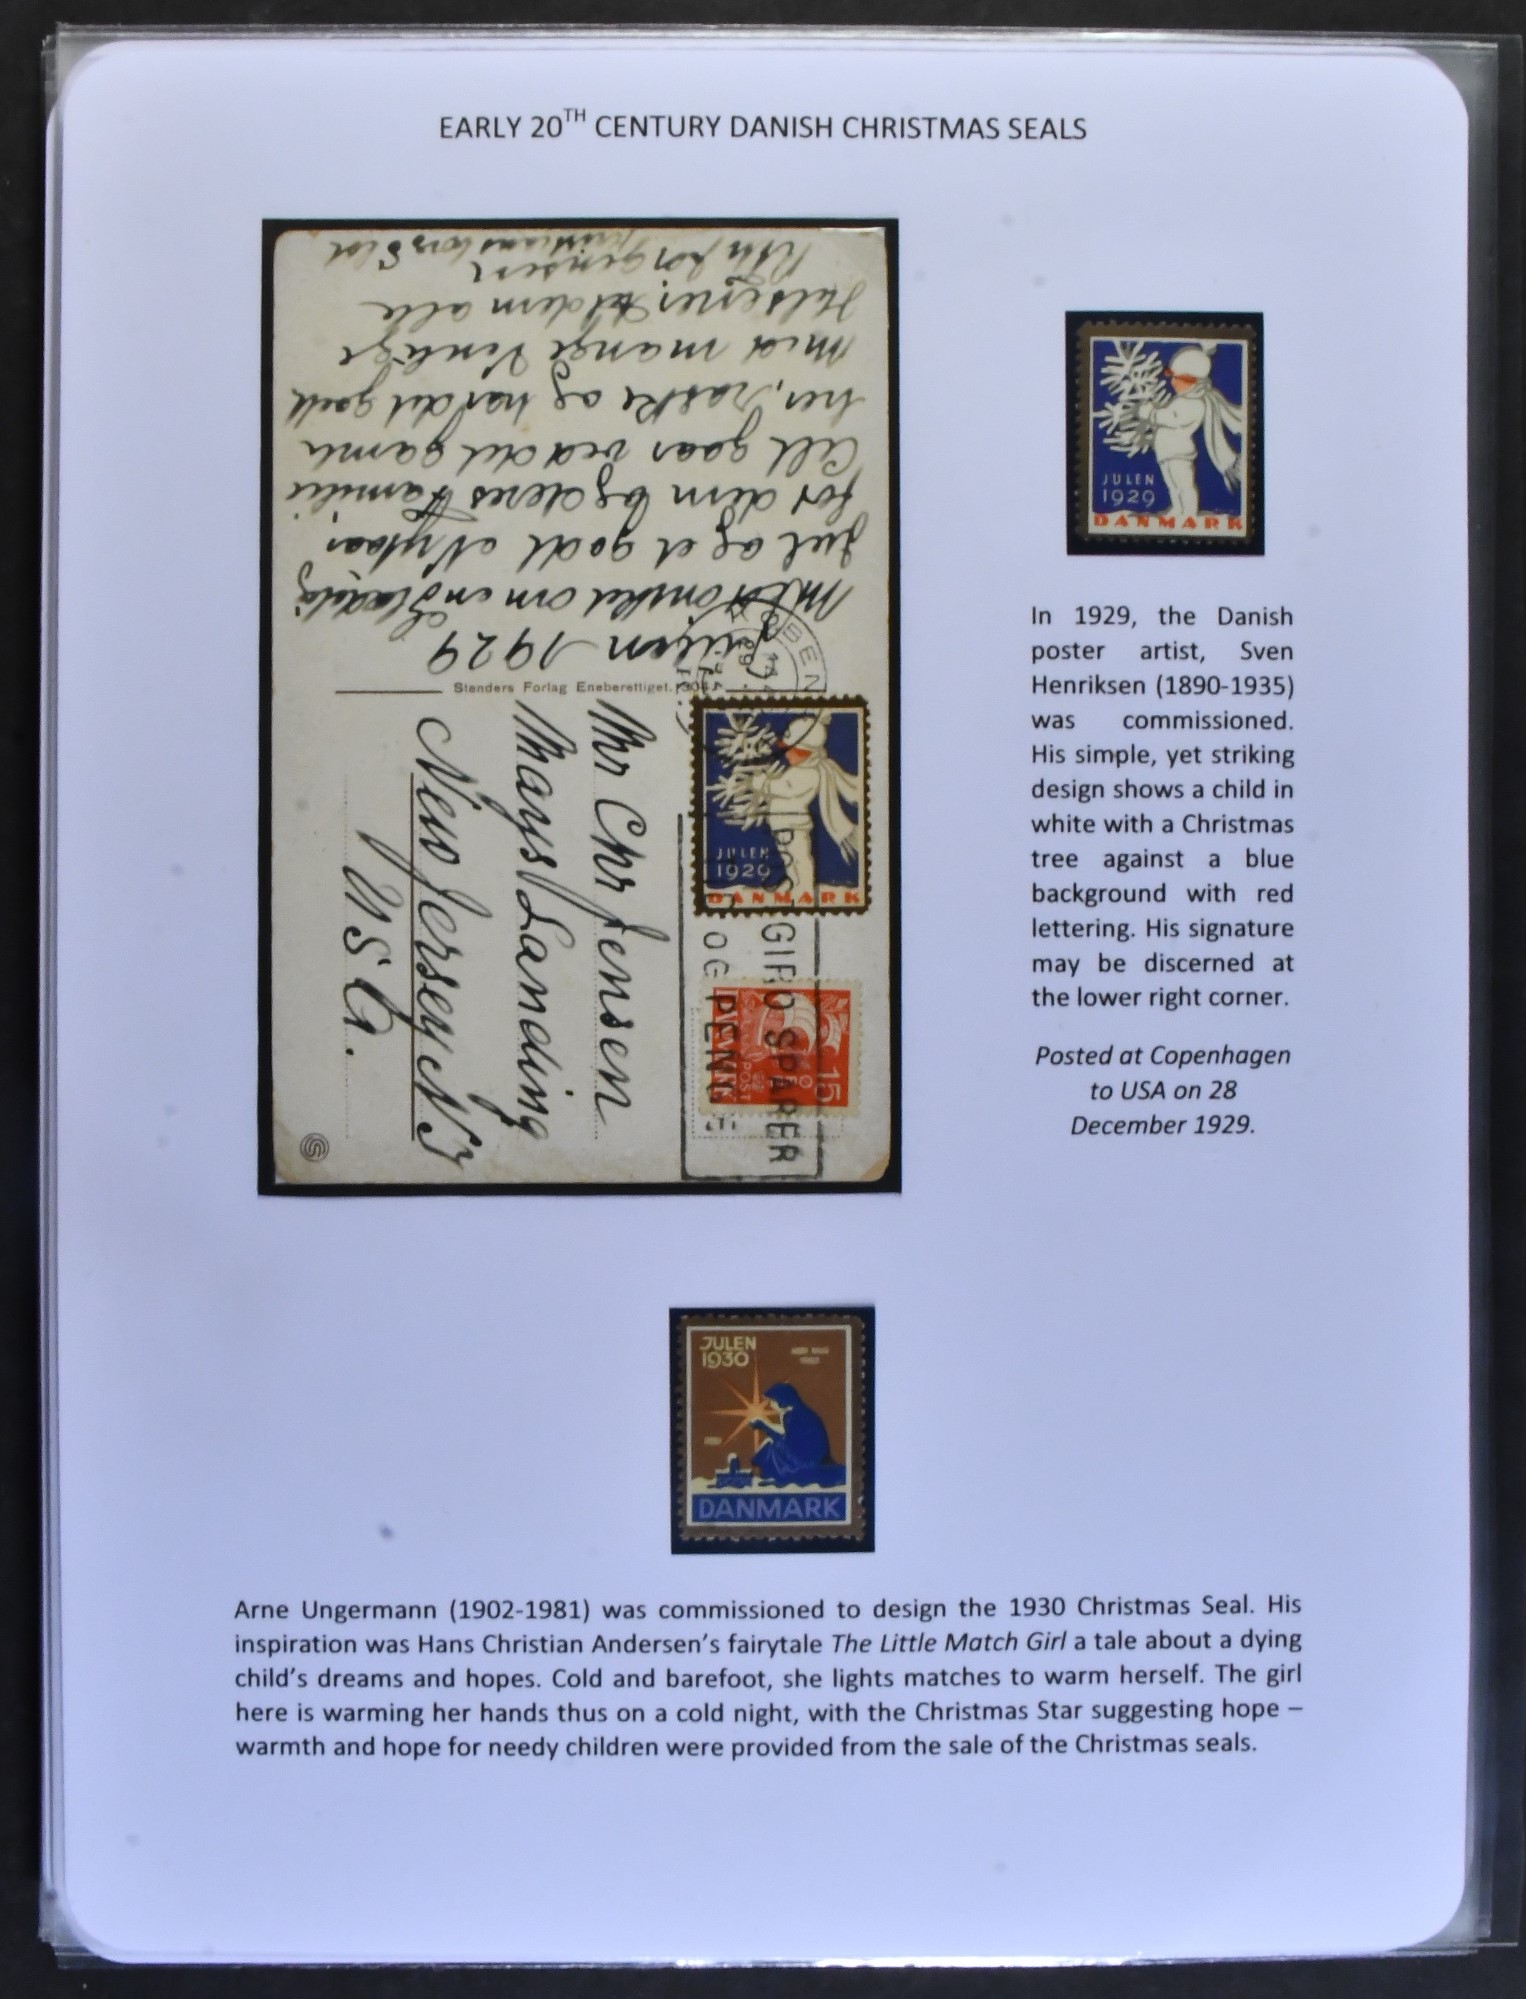 EARLY 20TH CENTURY DANISH CHRISTMAS SEALS
Julen 1929
Med Ønsket om en Glædelig
Jul og et godt Nytaar,
for dem og deres Familie
Alt gaar ved det gamle
her, raske og har det godt
Med mange Venlige
Hilsener, til dem alle
Standers Forlag Eneberettiget. 304
Mr Chr Jensen
Mays Landing
New Jersey N
U S A.
KØBEN
JULEN
1929
DANMARK
POSTGIRO SPARER
OG PENG
15
POST
DANMARK
JULEN
1929
DANMARK
In 1929, the Danish
poster artist, Sven
Henriksen (1890-1935)
was commissioned.
His simple, yet striking
design shows a child in
white with a Christmas
tree against a blue
background with red
lettering. His signature
may be discerned at
the lower right corner.
Posted at Copenhagen
to USA on 28
December 1929.
JULEN
1930
DANMARK
Arne Ungermann (1902-1981) was commissioned to design the 1930 Christmas Seal. His
inspiration was Hans Christian Andersen's fairytale The Little Match Girl a tale about a dying
child's dreams and hopes. Cold and barefoot, she lights matches to warm herself. The girl
here is warming her hands thus on a cold night, with the Christmas Star suggesting hope –
warmth and hope for needy children were provided from the sale of the Christmas seals.